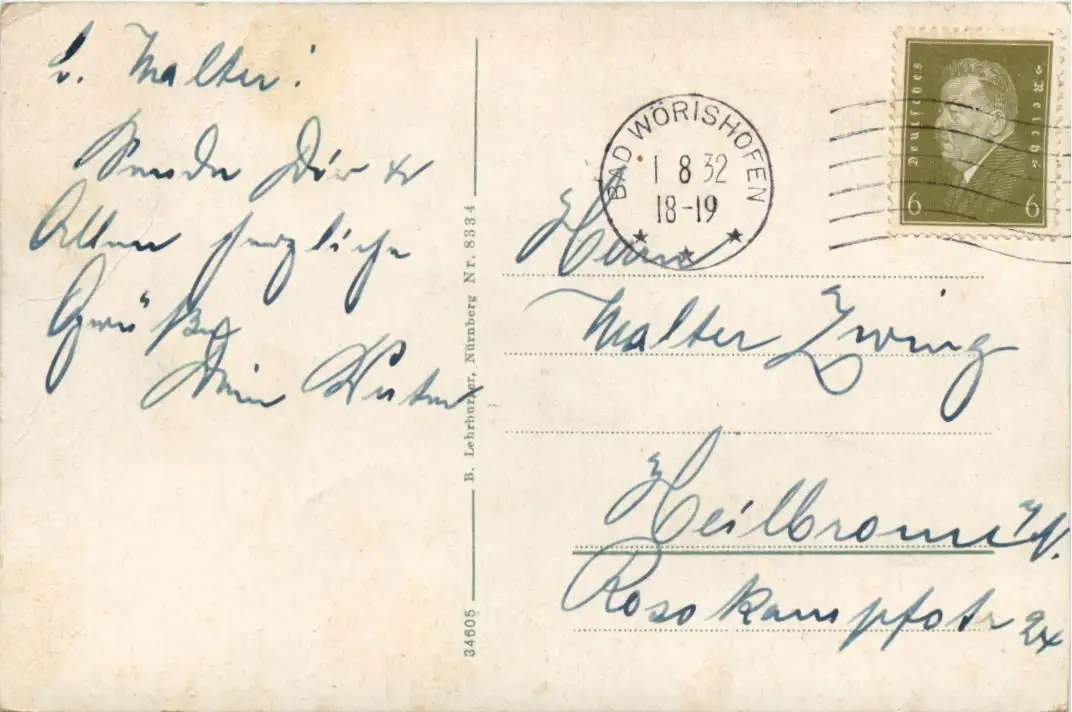 L. Walter!
Sende Dir u
Allen herzliche
Grüße
Dein
BAD WÖRISHOFEN
1 8 32
18-19
Deutsches Reich
6 6
Herrn
Walter Zwing
Heilbronn
Rosskampfstr 24
B. Lehrburger, Nürnberg Nr. 8334
34605